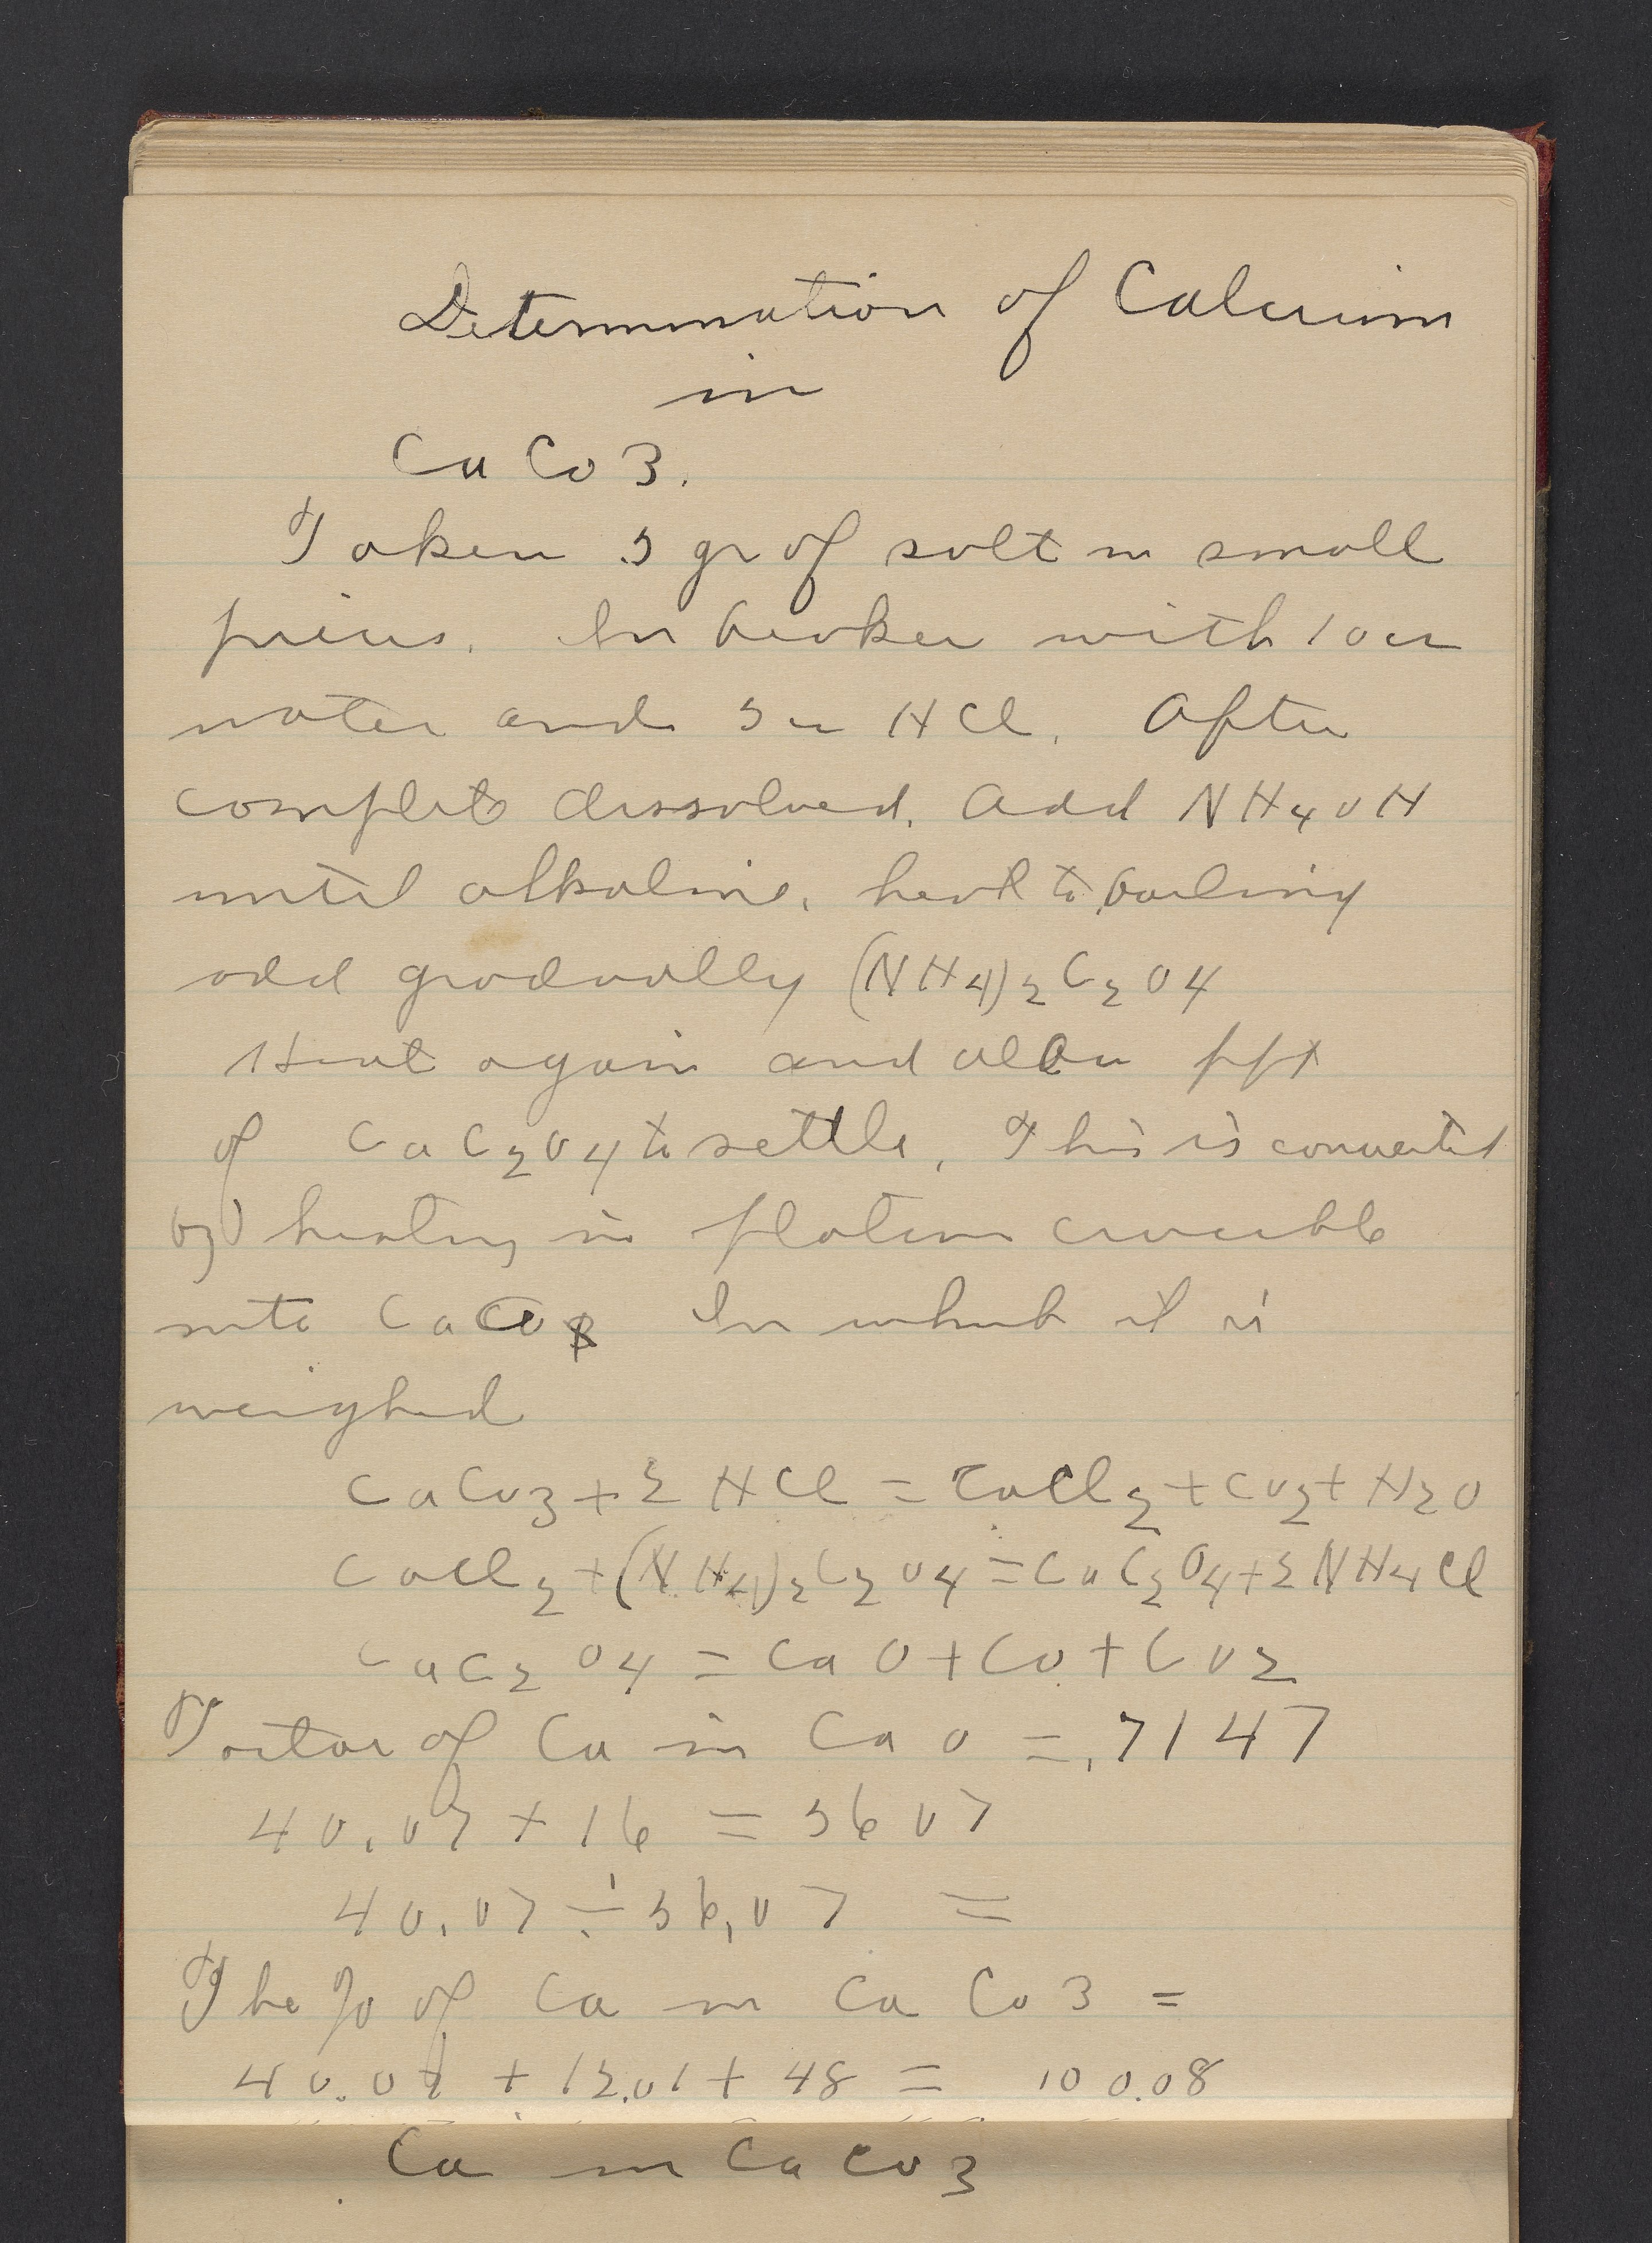 Determination of Calcium
in
CaCO3.
Taken .5 gr of salt in small
pieces. In beaker with 10 cc
water and 5 cc HCl. After
complete dissolved. Add NH4OH
until alkaline, heat to boiling
add gradually (NH4)2C2O4
Heat again and allow ppt
of CaC2O4 to settle. This is converted
by heating in platinum crucible
into CaO In which it is
weighed
CaCO3 + 2 HCl = CaCl2 + CO2 + H2O
CaCl2 + (NH4)2C2O4 = CaC2O4 + 2 NH4Cl
CaC2O4 = CaO + CO + CO2
Factor of Ca in CaO = .7147
40.07 + 16 = 5607
40.07 ÷ 56.07 =
The % of Ca in CaCO3 =
40.07 + 12.01 + 48 = 100.08
Ca in CaCO3